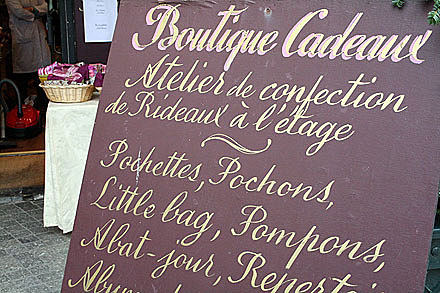 Boutique Cadeaux
Atelier de confection
de Rideaux à l'étage
Pochettes, Pochons,
Little bag, Pompons,
Abat-jour,